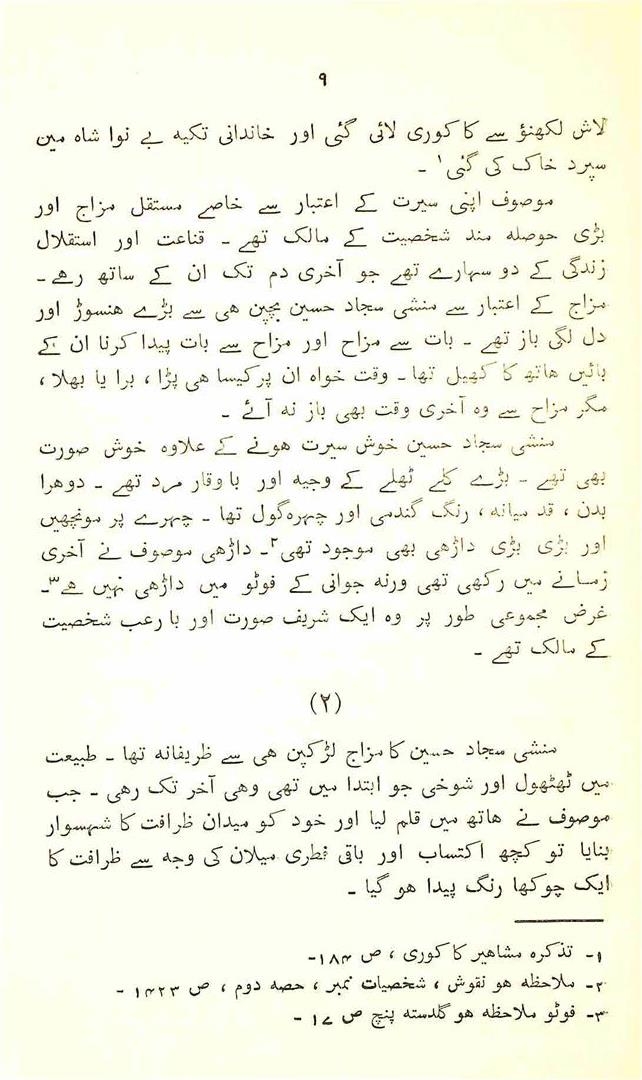 ۹
لاش لکھنؤ سے کاکوری لائی گئی اور خاندانی تکیہ بے نوا شاہ میں
سپرد خاک کی گئی۱ ۔
موصوف اپنی سیرت کے اعتبار سے خاصے مستقل مزاج اور
بڑی حوصلہ مند شخصیت کے مالک تھے ۔ قناعت اور استقلال
زندگی کے دو سہارے تھے جو آخری دم تک ان کے ساتھ رہے ۔
مزاج کے اعتبار سے منشی سجاد حسین بچپن ھی سے بڑے ھنسوڑ اور
دل لگی باز تھے ۔ بات سے مزاح اور مزاح سے بات پیدا کرنا ان کے
بائیں ھاتھ کا کھیل تھا ۔ وقت خواہ ان پر کیسا ھی پڑا ، برا یا بھلا ،
مگر مزاح سے وہ آخری وقت بھی باز نہ آئے ۔
منشی سجاد حسین خوش سیرت ھونے کے علاوہ خوش صورت
بھی تھے ۔ بڑے کلے ٹھلے کے وجیہ اور باوقار مرد تھے ۔ دوھرا
بدن ، قد میانہ ، رنگ گندمی اور چہرہ گول تھا ۔ چہرے پر مونچھیں
اور بڑی بڑی داڑھی بھی موجود تھی۲۔ داڑھی موصوف نے آخری
زمانے میں رکھی تھی ورنہ جوانی کے فوٹو میں داڑھی نہیں ھے۳۔
غرض مجموعی طور پر وہ ایک شریف صورت اور بارعب شخصیت
کے مالک تھے ۔
(۲)
منشی سجاد حسین کا مزاج لڑکپن ھی سے ظریفانہ تھا ۔ طبیعت
میں ٹھٹھول اور شوخی جو ابتدا میں تھی وھی آخر تک رھی ۔ جب
موصوف نے ھاتھ میں قلم لیا اور خود کو میدان ظرافت کا شہسوار
بنایا تو کچھ اکتساب اور باقی فطری میلان کی وجہ سے ظرافت کا
ایک چوکھا رنگ پیدا ھو گیا ۔
۱۔ تذکرہ مشاھیر کاکوری ، ص ۱۸۴۔
۲۔ ملاحظہ ھو نقوش ، شخصیات نمبر ، حصہ دوم ، ص ۱۴۲۳ ۔
۳۔ فوٹو ملاحظہ ھو گلدستہ پنچ ص ۱۷ ۔